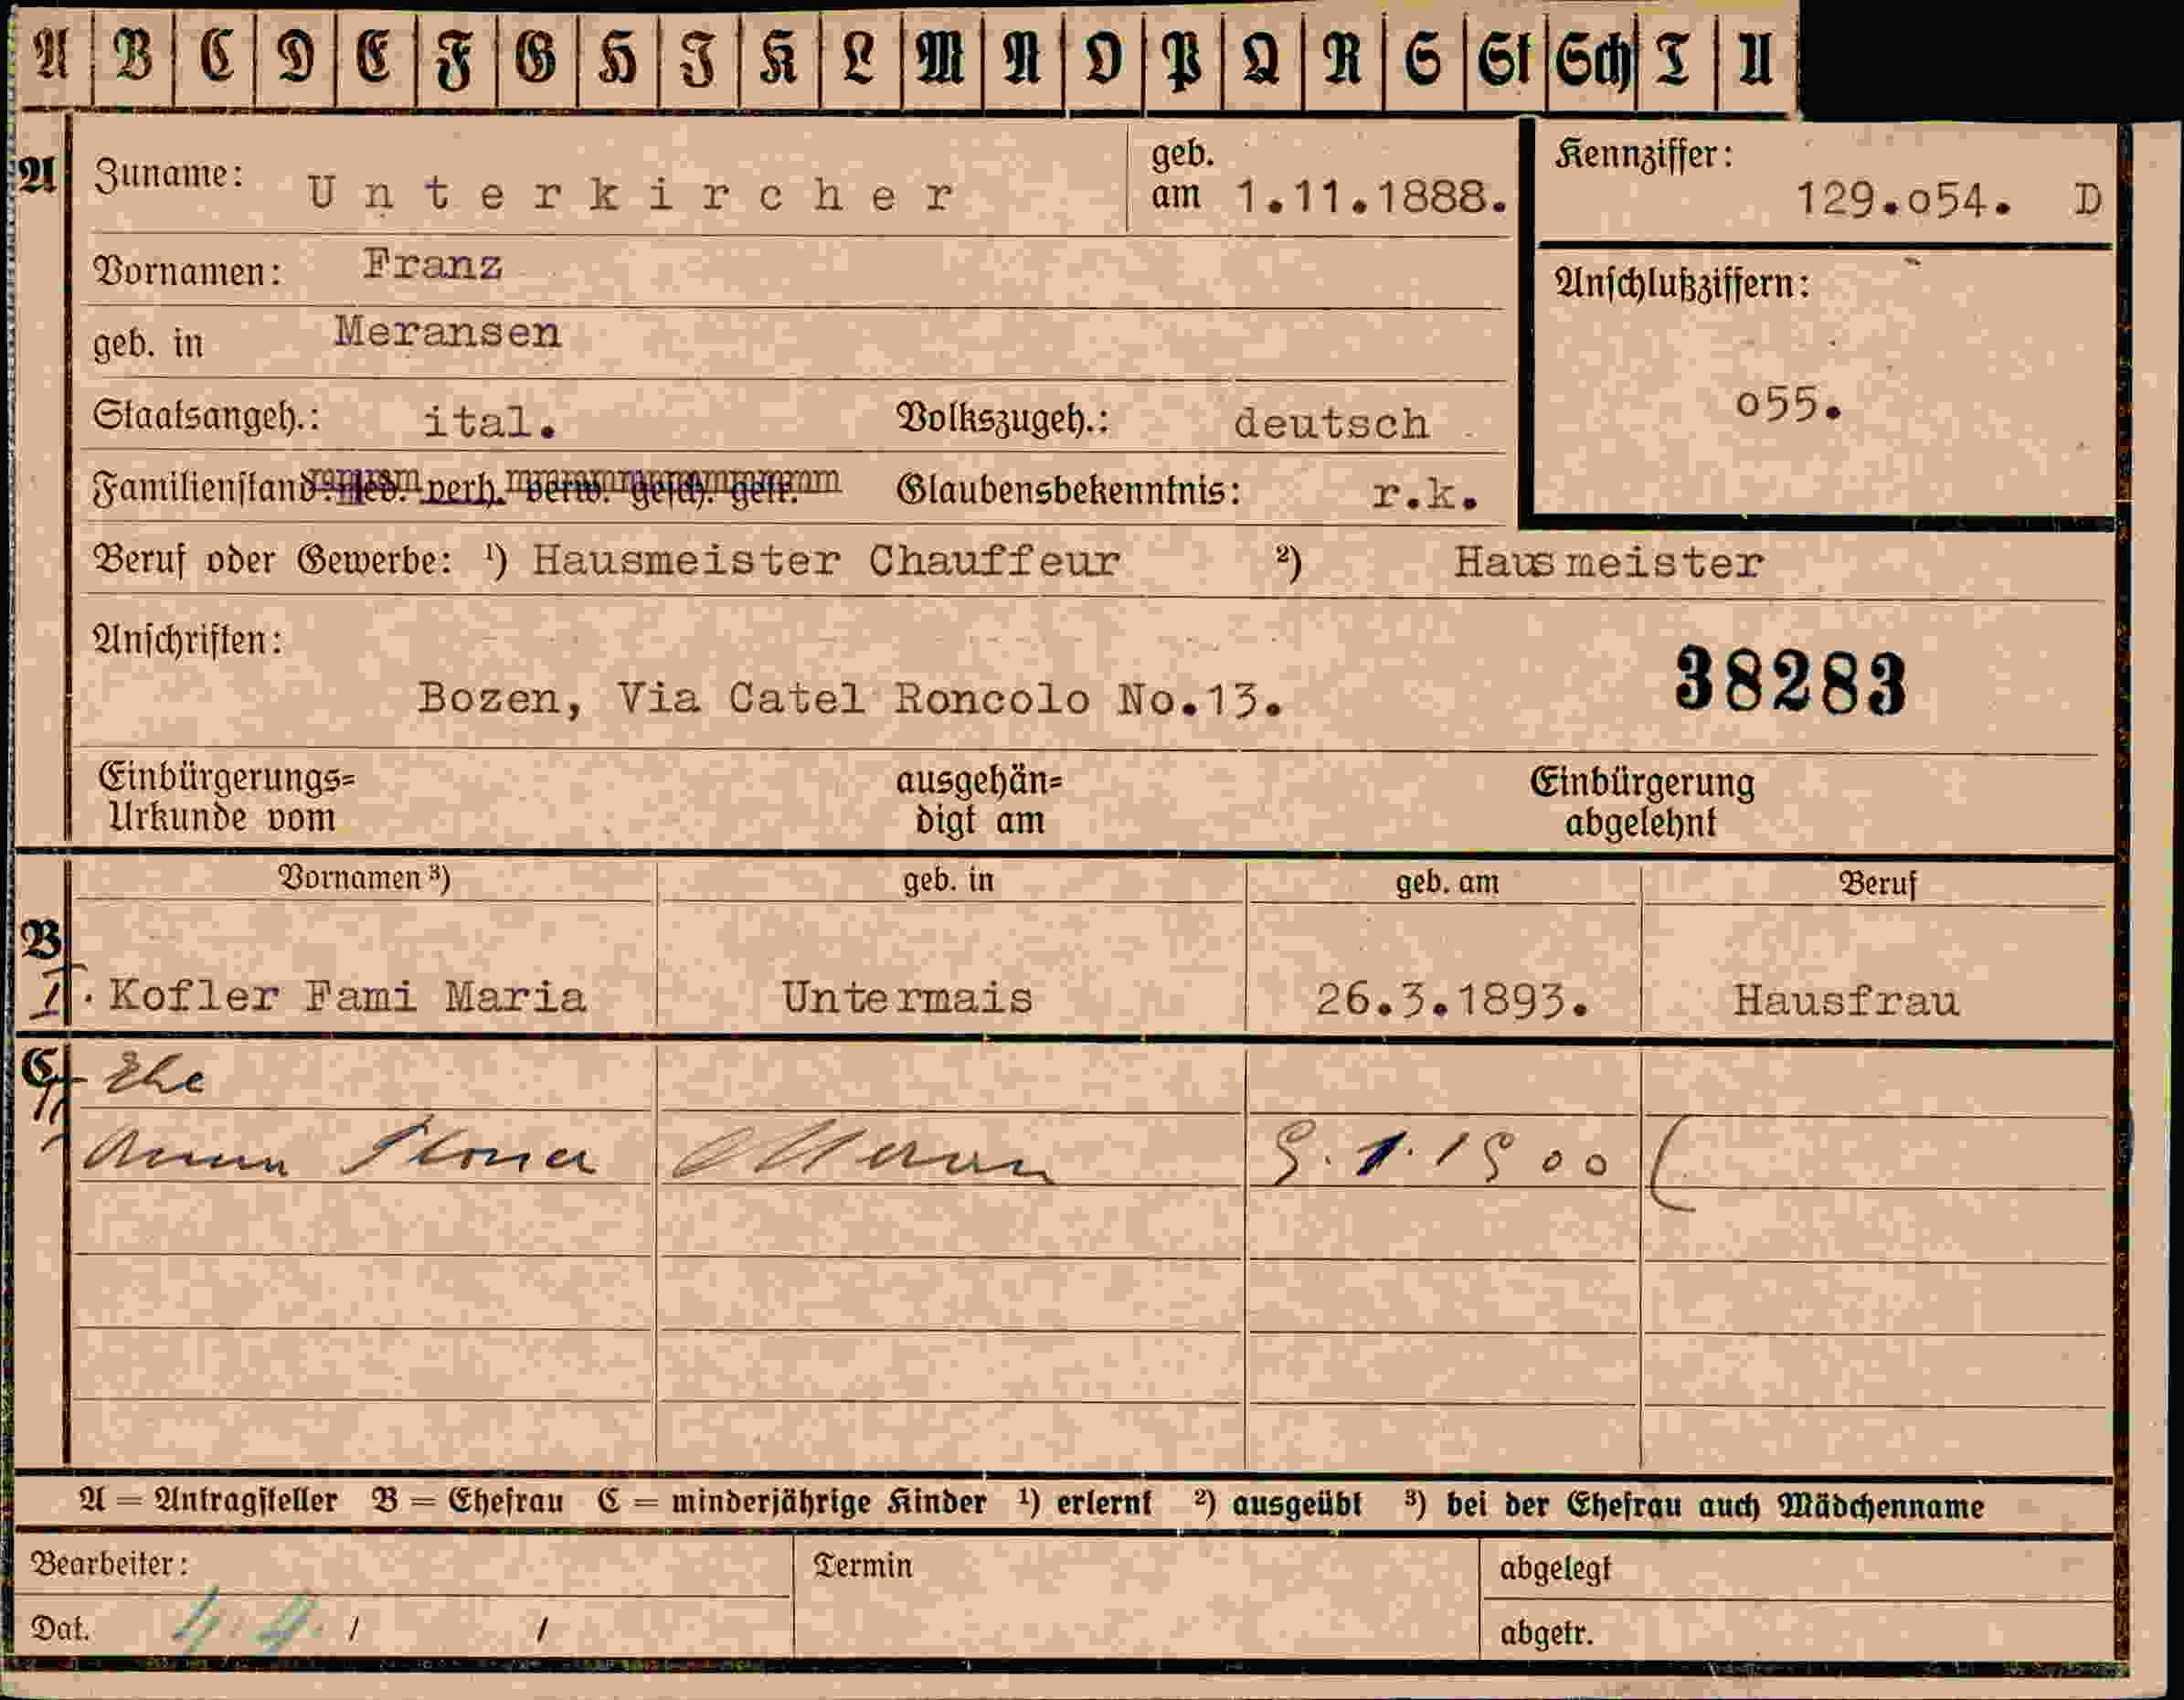 A B C D E F G H J K L M N O P Q R S St Sch T U
A Zuname: Unterkircher geb. am 1.11.1888. Kennziffer: 129.o54. D
Vornamen: Franz
geb. in Meransen
Anschlußziffern:
o55.
Staatsangeh.: ital. Volkszugeh.: deutsch
Familienstand: led. verh. verw. gesch. getr. Glaubensbekenntnis: r.k.
Beruf oder Gewerbe: ¹) Hausmeister Chauffeur ²) Hausmeister
Anschriften:
Bozen, Via Catel Roncolo No.13.
38283
Einbürgerungs=
Urkunde vom
ausgehän=
digt am
Einbürgerung
abgelehnt
Vornamen ³) geb. in geb. am Beruf
B
I. Kofler Fami Maria Untermais 26.3.1893. Hausfrau
C
II Ehe
Anna Ploner Meran 9.1.1900
A = Antragsteller B = Ehefrau C = minderjährige Kinder ¹) erlernt ²) ausgeübt ³) bei der Ehefrau auch Mädchenname
Bearbeiter: Termin abgelegt
Dat. / / abgetr.